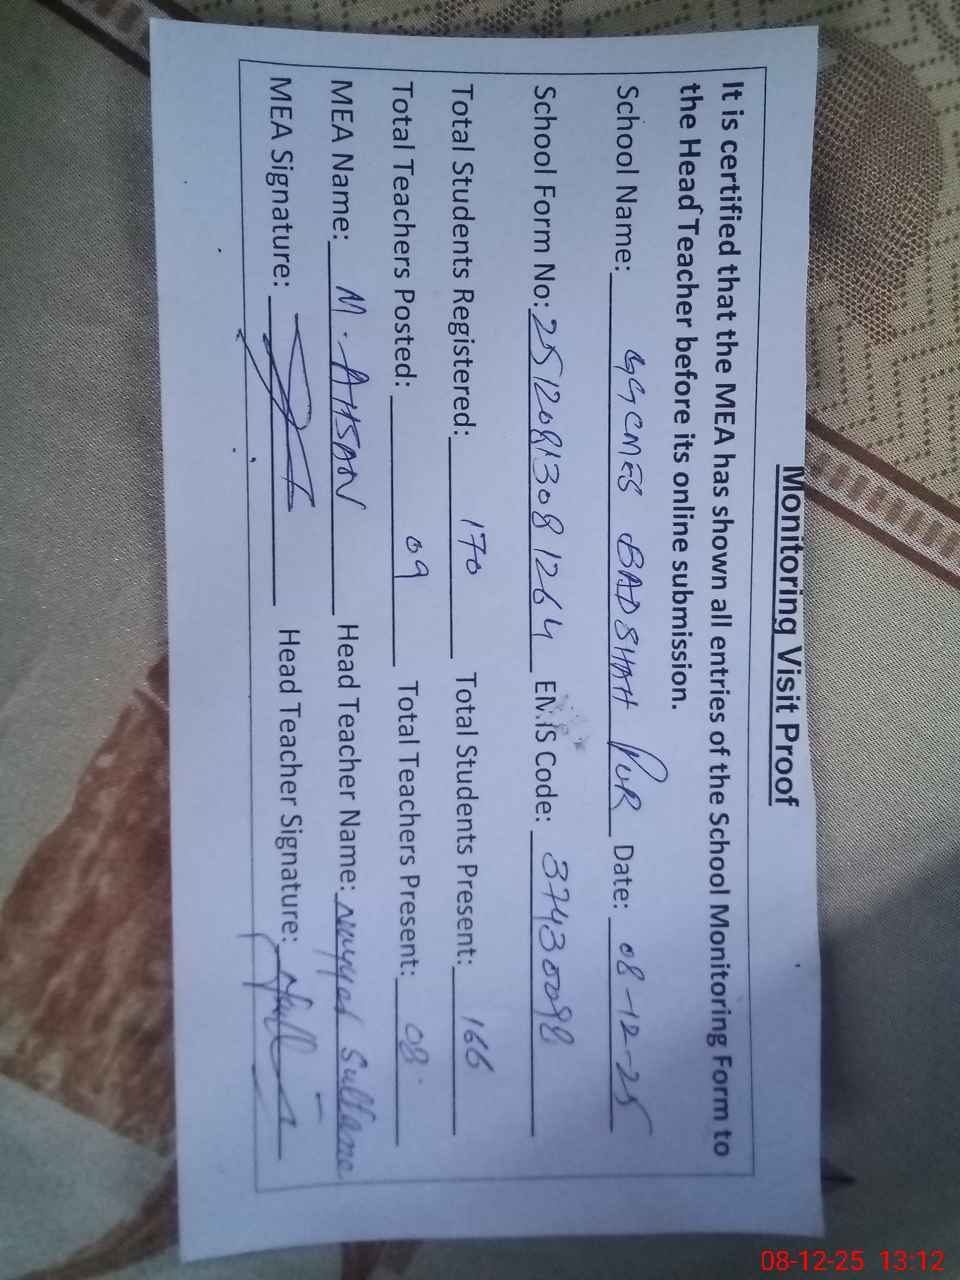 Monitoring Visit Proof
It is certified that the MEA has shown all entries of the School Monitoring Form to
the Head Teacher before its online submission.
School Name: GGCMES BADSHAH PUR Date: 08-12-25
School Form No: 2512081308 1264 EMIS Code: 37430098
Total Students Registered: 170 Total Students Present: 166
Total Teachers Posted: 09 Total Teachers Present: 08
MEA Name: M. AHSAN Head Teacher Name: Sultana
MEA Signature: Head Teacher Signature:
08-12-25 13:12